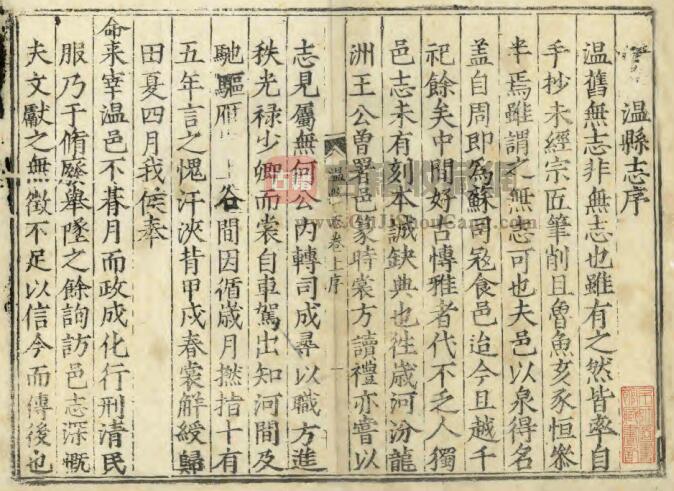 温縣志序
温舊無志非無志也雖有之然皆率自
手抄未經宗匠筆削且魯魚亥豕恒叅
半焉雖謂之無志可也夫邑以泉得名
盖自周即爲蘇司冦食邑迨今且越千
祀餘矣中間好古慱雅者代不乏人獨
邑志未有刻本誠缺典也徃歲河汾龍
洲王公曽署邑篆時裳方讀禮亦嘗以
温縣志卷上序
一
志見屬無何公內轉司成尋以職方進
秩光禄少卿而裳自車駕出知河間及
馳驅雁 谷間因循歲月撚指十有
五年言之愧汗浹背甲戌春裳解綬歸
田夏四月我侯奉
命来宰温邑不朞月而政成化行刑清民
服乃于脩廢舉墜之餘詢訪邑志深慨
夫文獻之無徵不足以信今而傳後也
古籍
www.GuJiShouCang.com